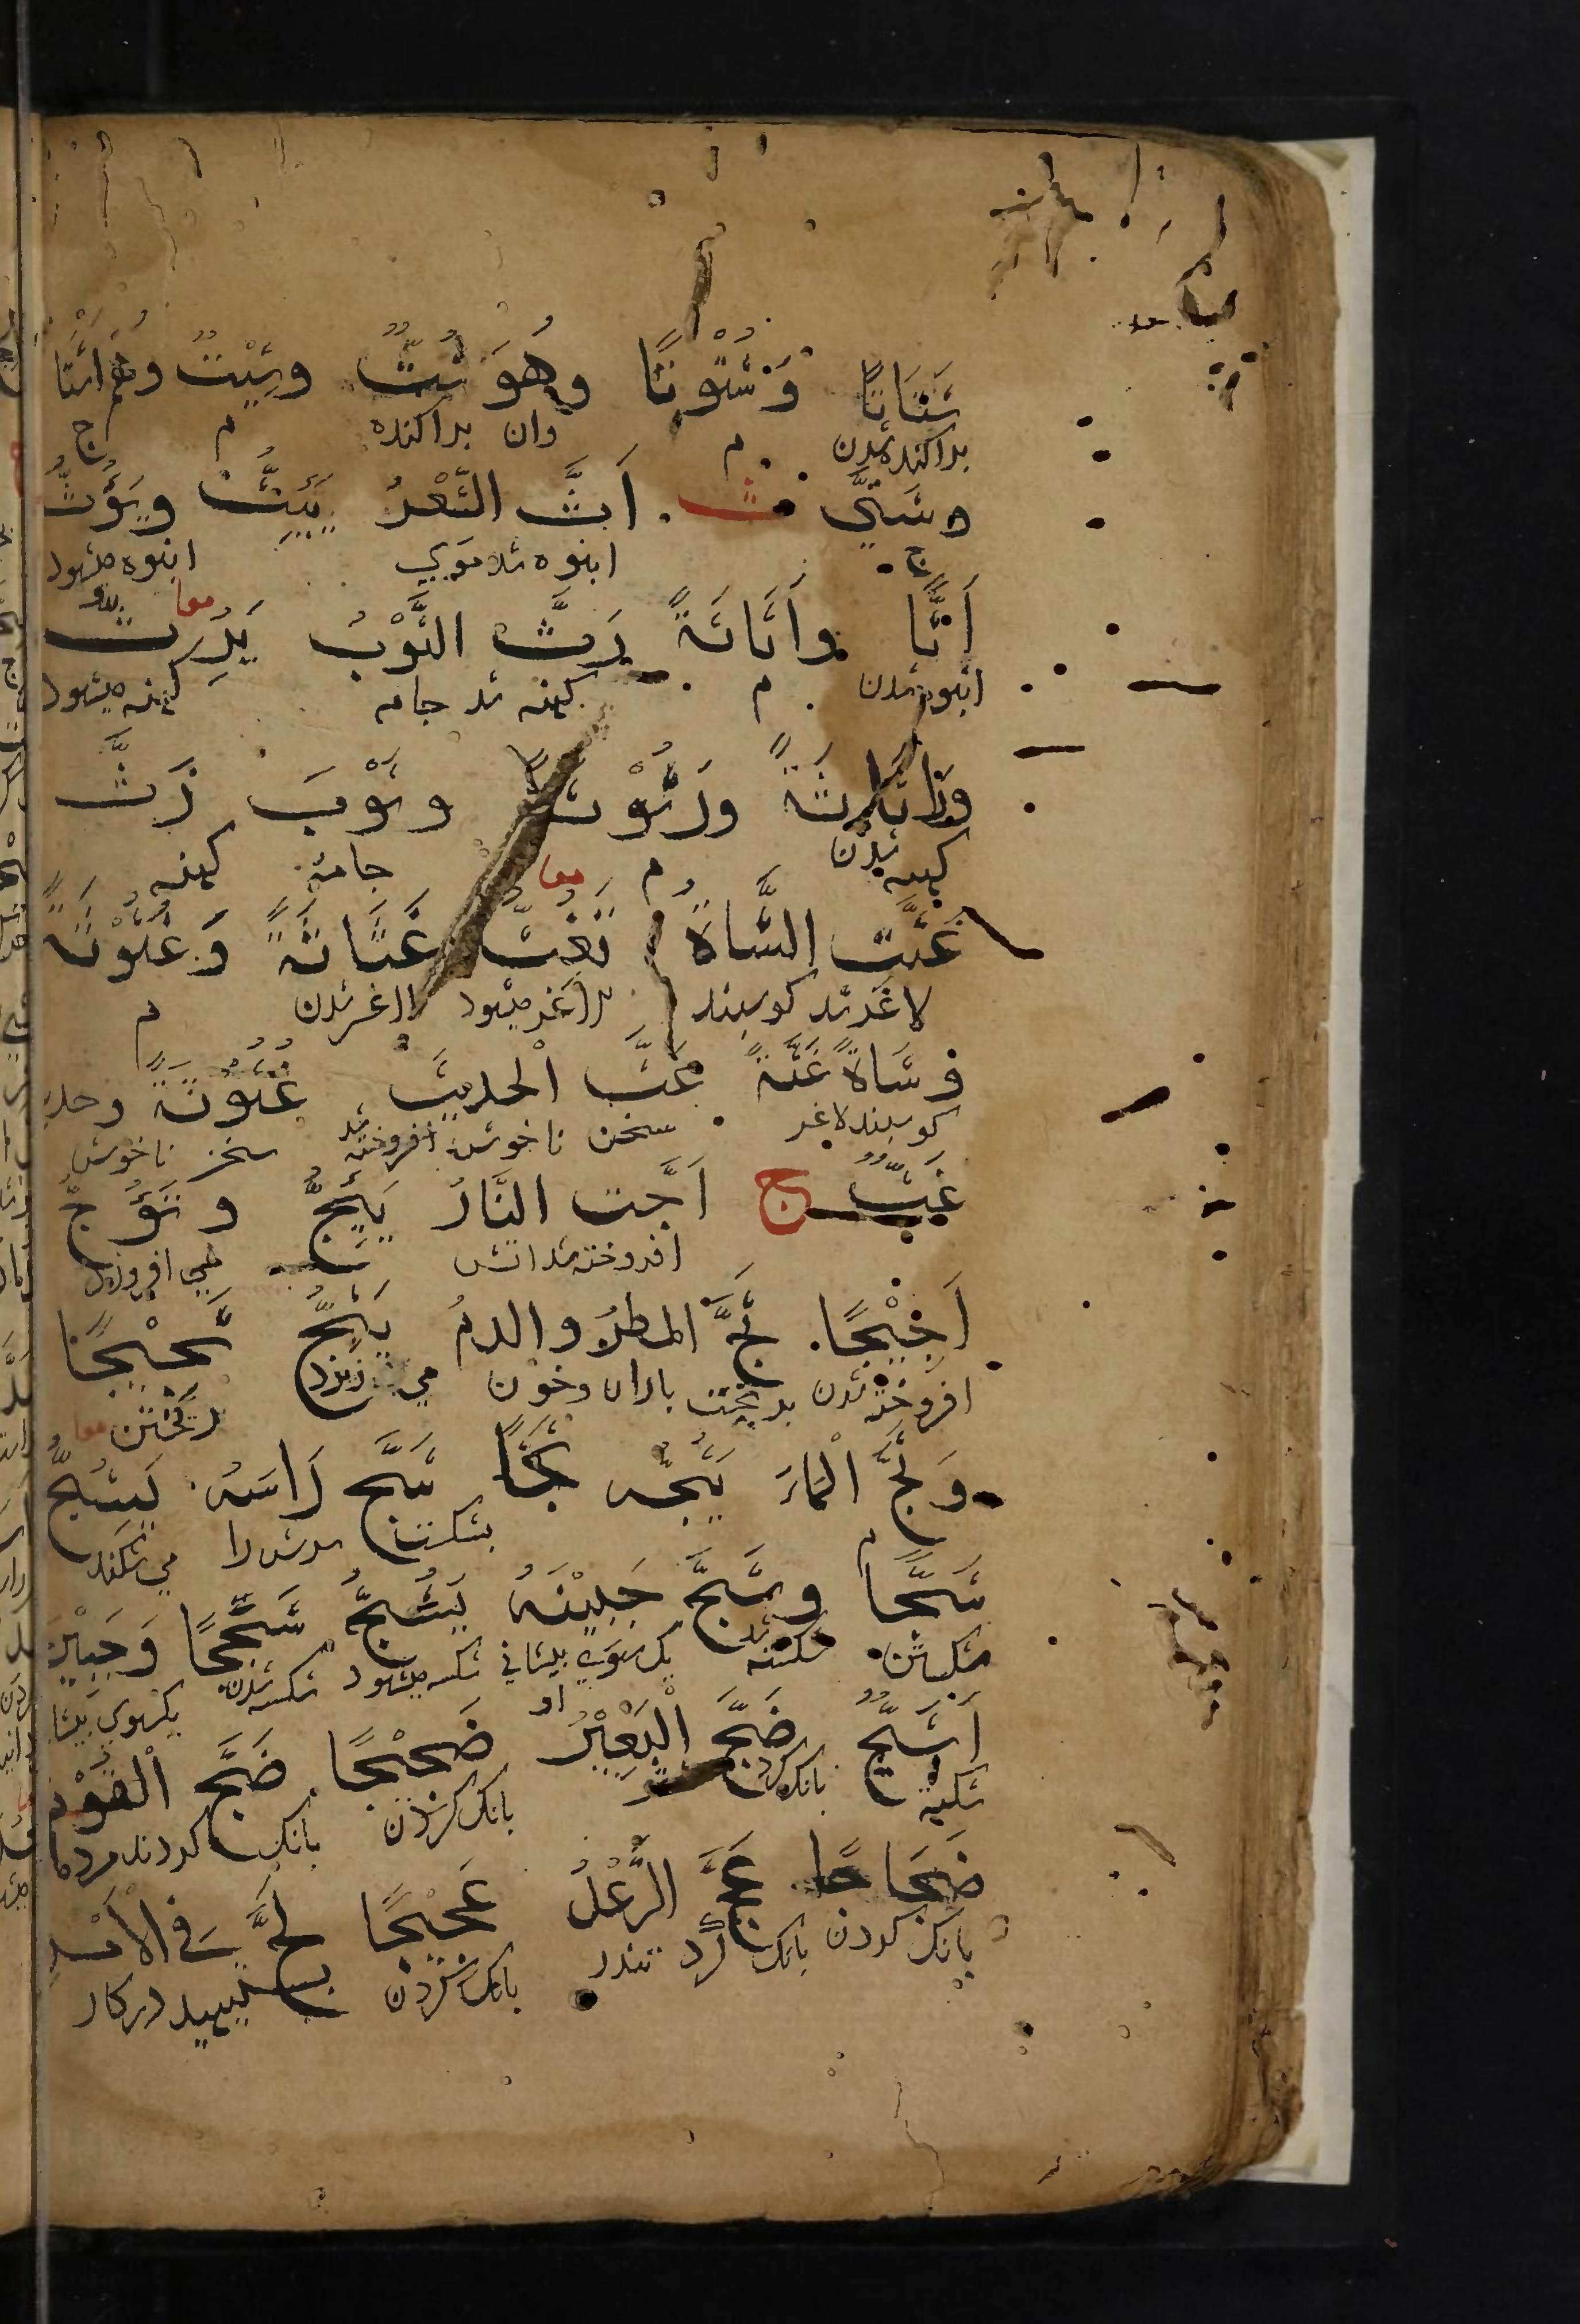 شَتَاتًا وَشُتُوْتًا وهُوَ شَتٌّ وشَتِيْتٌ وهُمْ اَشْتَا
براكنده شدن م وان براكنده م ج
وشَتّٰي ث اَثَّ الشَّعْرُ يَئِثُّ ويَؤُثُّ
ج انبوه شد موي انبوه ميشود
اَثًّا واَثَاثَةً رَثَّ الثَّوْبُ يَرِثُّ معا
انبوه شدن م كهنه شد جامه كهنه ميشود
ورَثَاثَةً ورُثُوْثَةً وثَوْبَ رَثَّ
كهنه شدن م جامه كهنه
غَثَّت الشَّاةُ تَغِثُّ غَثَاثَةً وَغُثُوْثَةً
معا لاغر شد كوسبند لاغر ميشود لاغر شدن م
وشَاةٌ غَثَّةٌ غَثَّ الْحديثَ غُثُوْثَةً وحد
كوسبند لاغر سخن ناخوش سخن ناخوش
غَثٌّ ج اَجَّت النَّارُ يَئِجُّ وتَؤُجُّ
افروخته شد افروخته شد اتش مي افروزد
اَجِيْجًا ثَجَّ المطرُ والدمُ يَثِجُّ ثَجِيْجًا
افروخته شدن بريخت باران وخون مي ريزد ريختن معا
وَثَجَّ الْمَاءَ يَثُجُّه ثَجًّا شَجَّ رَاسَهُ يَشُجُّ
م بشكست سرش را مي شكند
شَجًّا وشَجَّ جَبِيْنَهُ يَشُجُّ شَجَجًا وَجَبِيْن
شكستن شكسته شد يك سوي بيشاني او شكسته ميشود شكسته شدن يكسوي بيشا
اَشَجٌّ ضَجَّ الْبَعِيْرُ ضَجِيْجًا ضَجَّ الْقَوْم
شكسته بانك كرد شتر بانك كردن بانك كردند مردما
ضَجَاجًا عَجَّ الرَّعْدُ عَجِيْجًا لَجَّ فِي الْاَمْرِ
بانك كردن بانك كرد تندر بانك كردن بستيهيد دركار